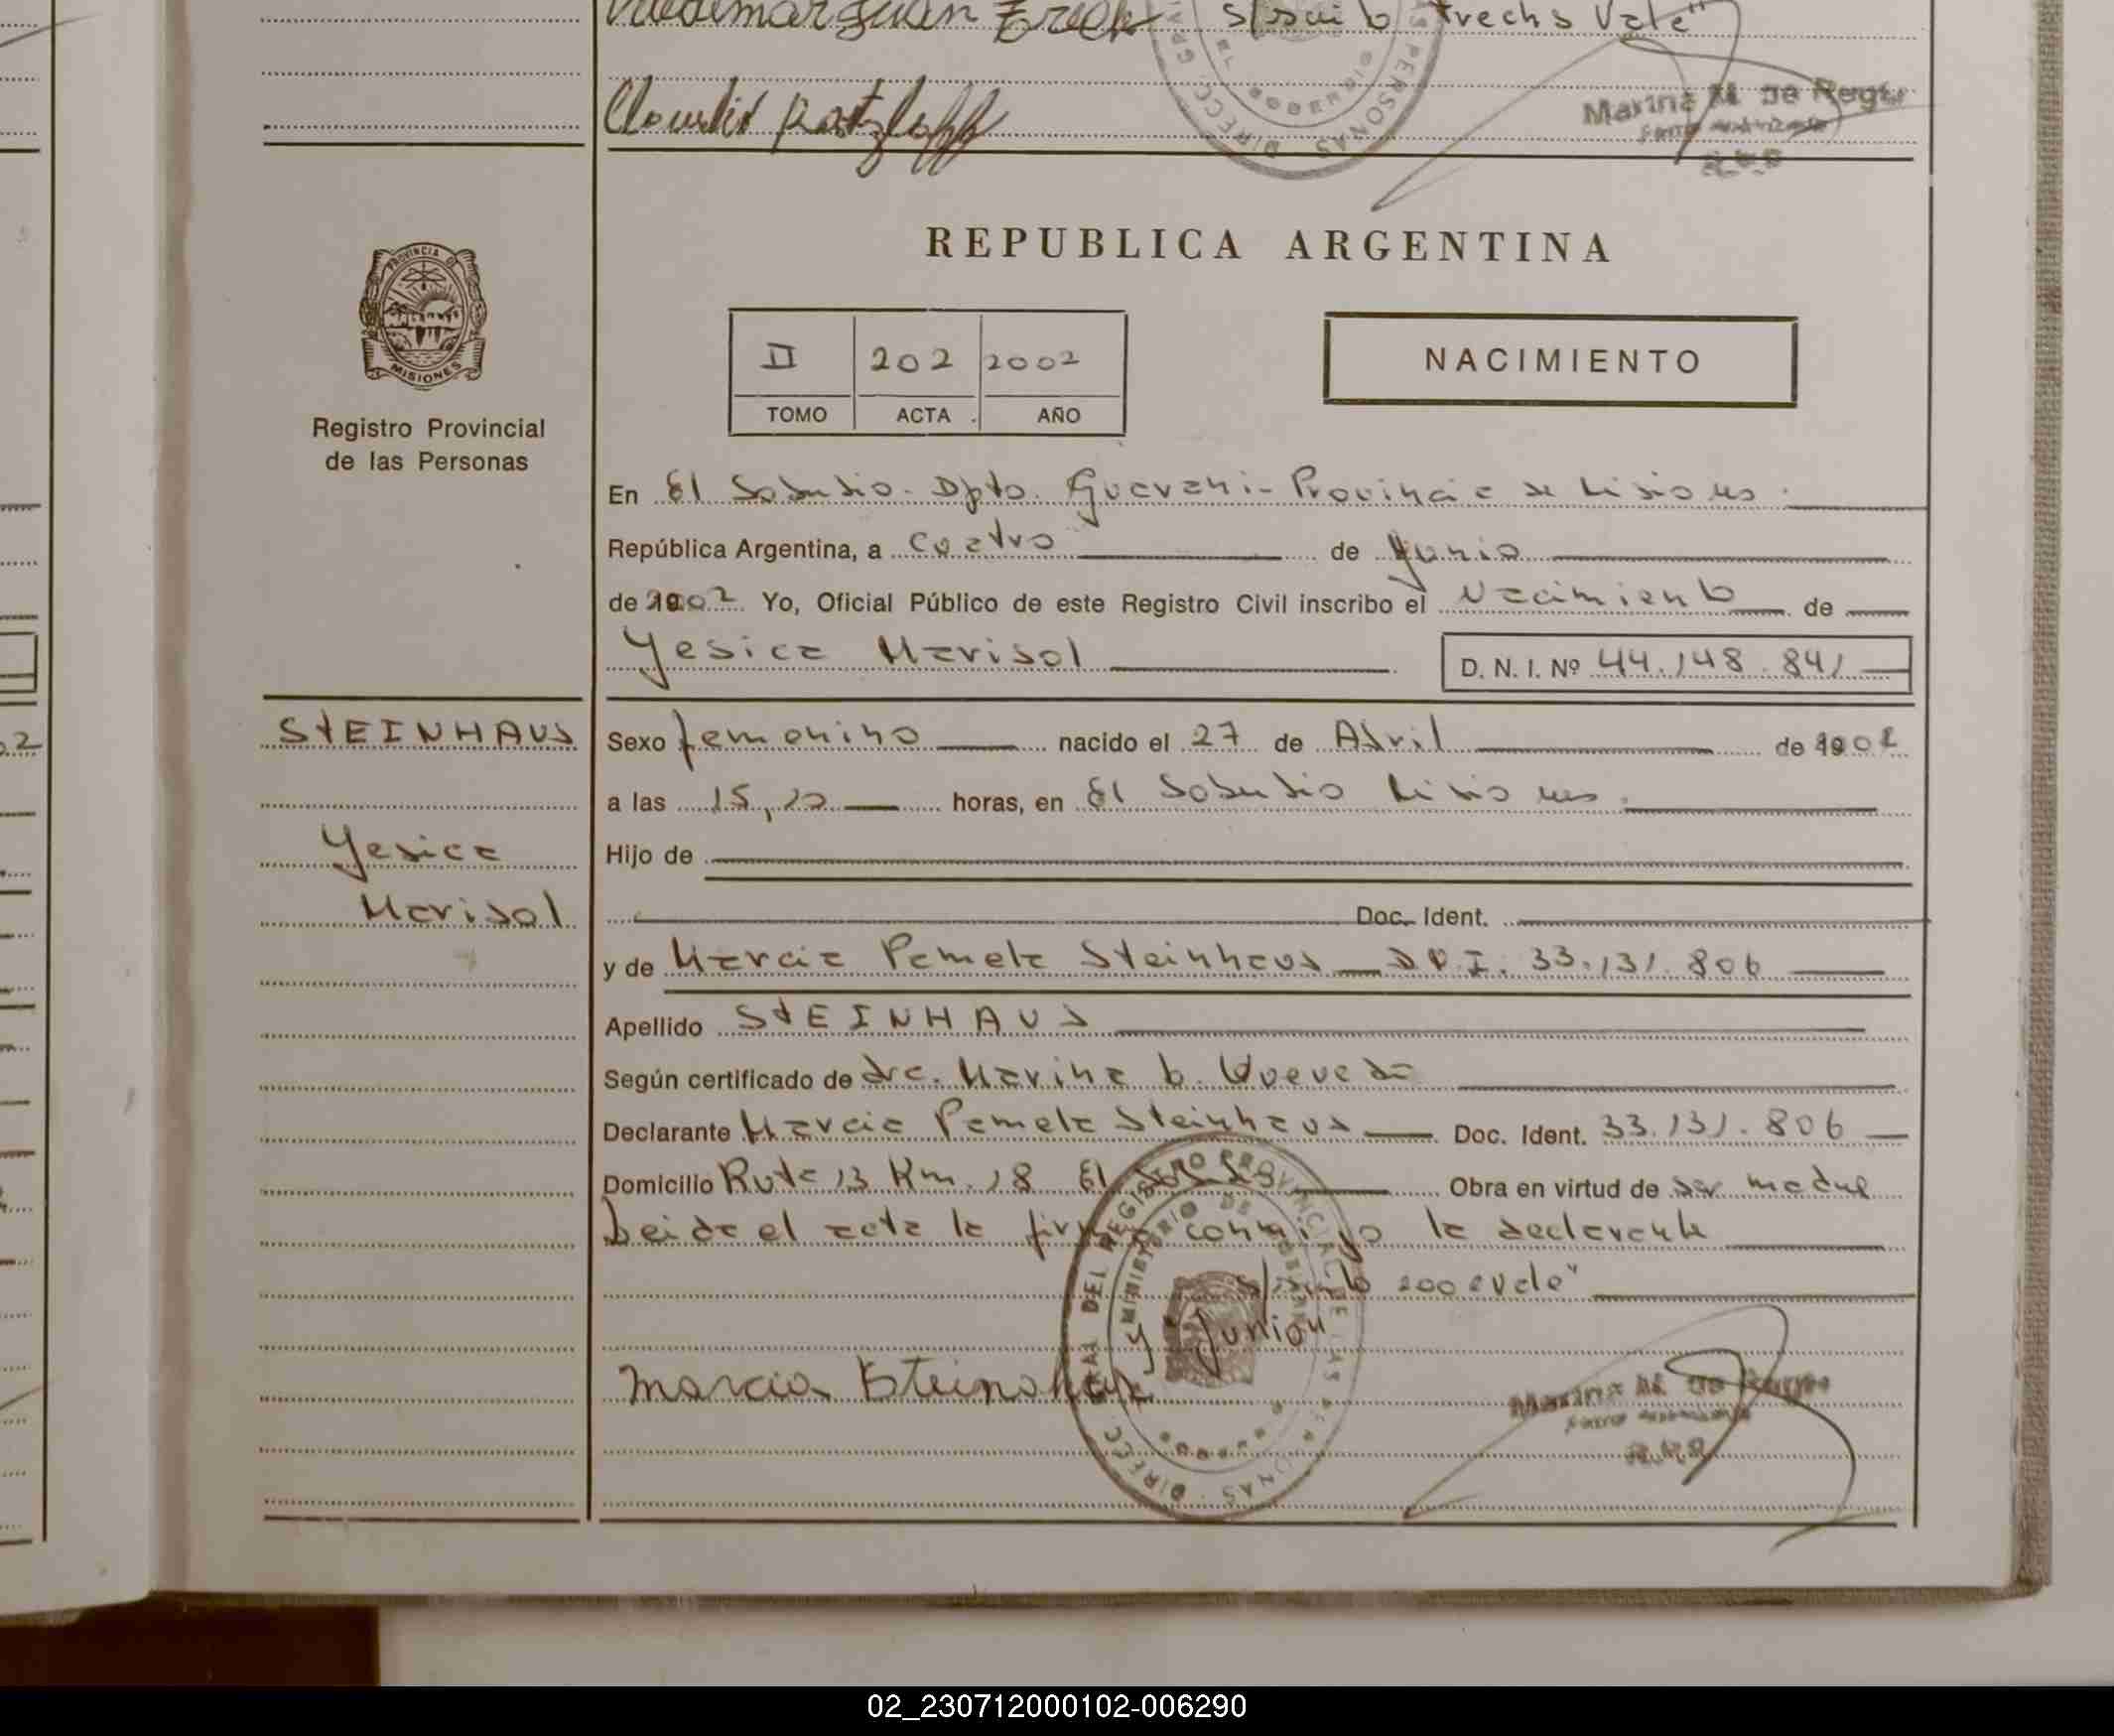 s/raib trechs Vale"
Claudio Ratzlaff
DIRECC GRAL PERSONAS
Marina M de
PROVINCIA DE
MISIONES
Registro Provincial
de las Personas
REPUBLICA ARGENTINA
II 202 2002
TOMO ACTA AÑO
NACIMIENTO
En El Soberbio. Dpto. Guarani - Provincia de Misiones.
República Argentina, a cuatro de Junio
de 2002 Yo, Oficial Público de este Registro Civil inscribo el Nacimiento de
Yesica Marisol D. N. I. Nº 44.148.841
STEINHAUS
Yesica
Marisol
Sexo femenino nacido el 27 de Abril de 2002
a las 15,20 horas, en El Soberbio Misiones.
Hijo de
Doc. Ident.
y de Marcia Pamela Steinhaus D.N.I. 33.131.806
Apellido STEINHAUS
Según certificado de dra. Marina b.
Declarante Marcia Pamela Steinhaus Doc. Ident. 33.131.806
Domicilio Ruta 13 Km. 18 El Obra en virtud de ser madre
Leida el acta la firma conmigo la declarante
s/raib 200 vale"
y "Junio"
Marcia Steinhaus
DIRECC GRAL DEL REGISTRO PROVINCIAL DE LAS PERSONAS
MINISTERIO DE GOBIERNO
Marina M. de
02_230712000102-006290